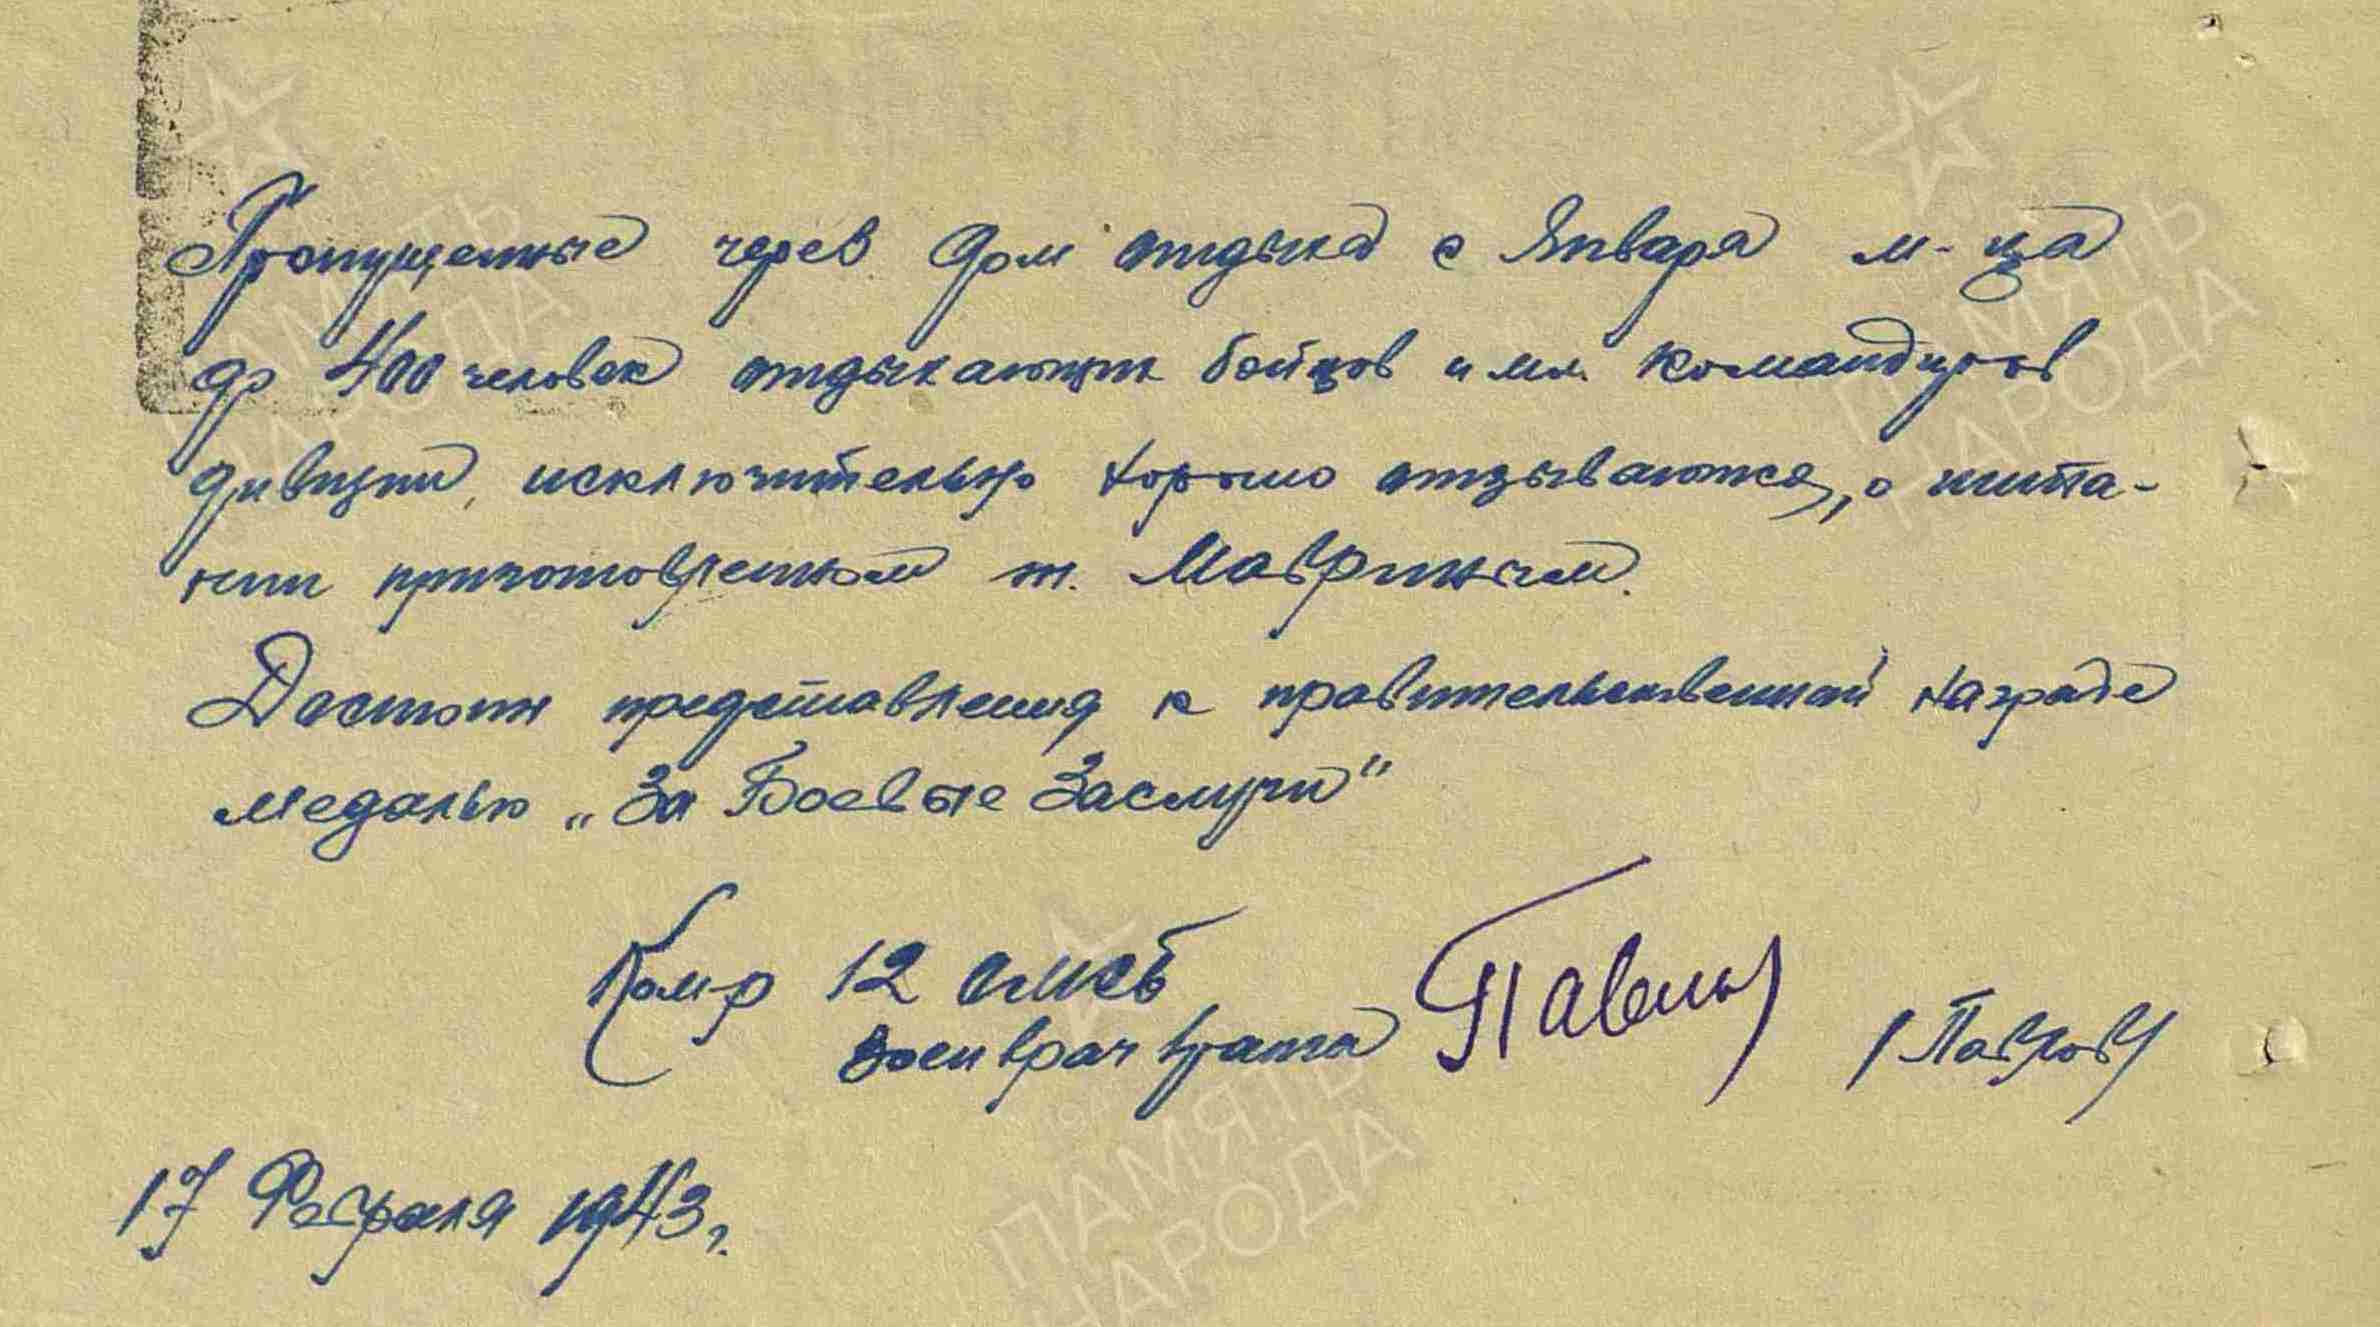 Пропущенные через дом отдыха с Января м-ца
до 400 человек отдыхающих бойцов и мл. командиров
дивизии, исключительно хорошо отзываются, о пита-
нии приготовленном т. Мавриным.
Достоин представления к правительственной награде
медалью „За Боевые Заслуги"
Ком-р 12 омсб
военврач 3 ранга Павлов /Павлов/
17 Февраля 1943 г.
ПАМЯТЬ
НАРОДА
ПАМЯТЬ
НАРОДА
ПАМЯТЬ
НАРОДА